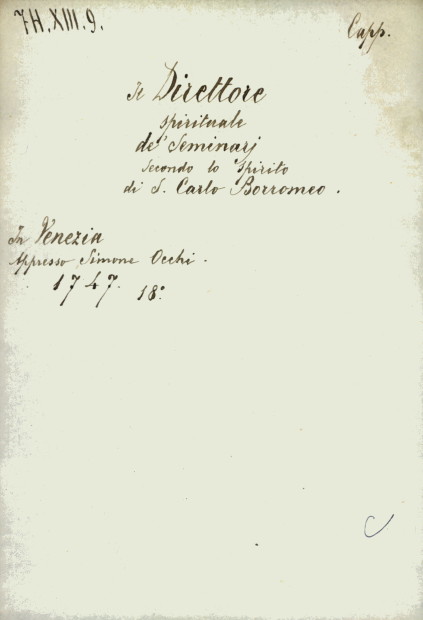 7H.XIII.9.
Capp.
Il Direttore
spirituale
de' Seminarj
secondo lo spirito
di S. Carlo Borromeo.
In Venezia
Appresso Simone Occhi.
1747. 18°.